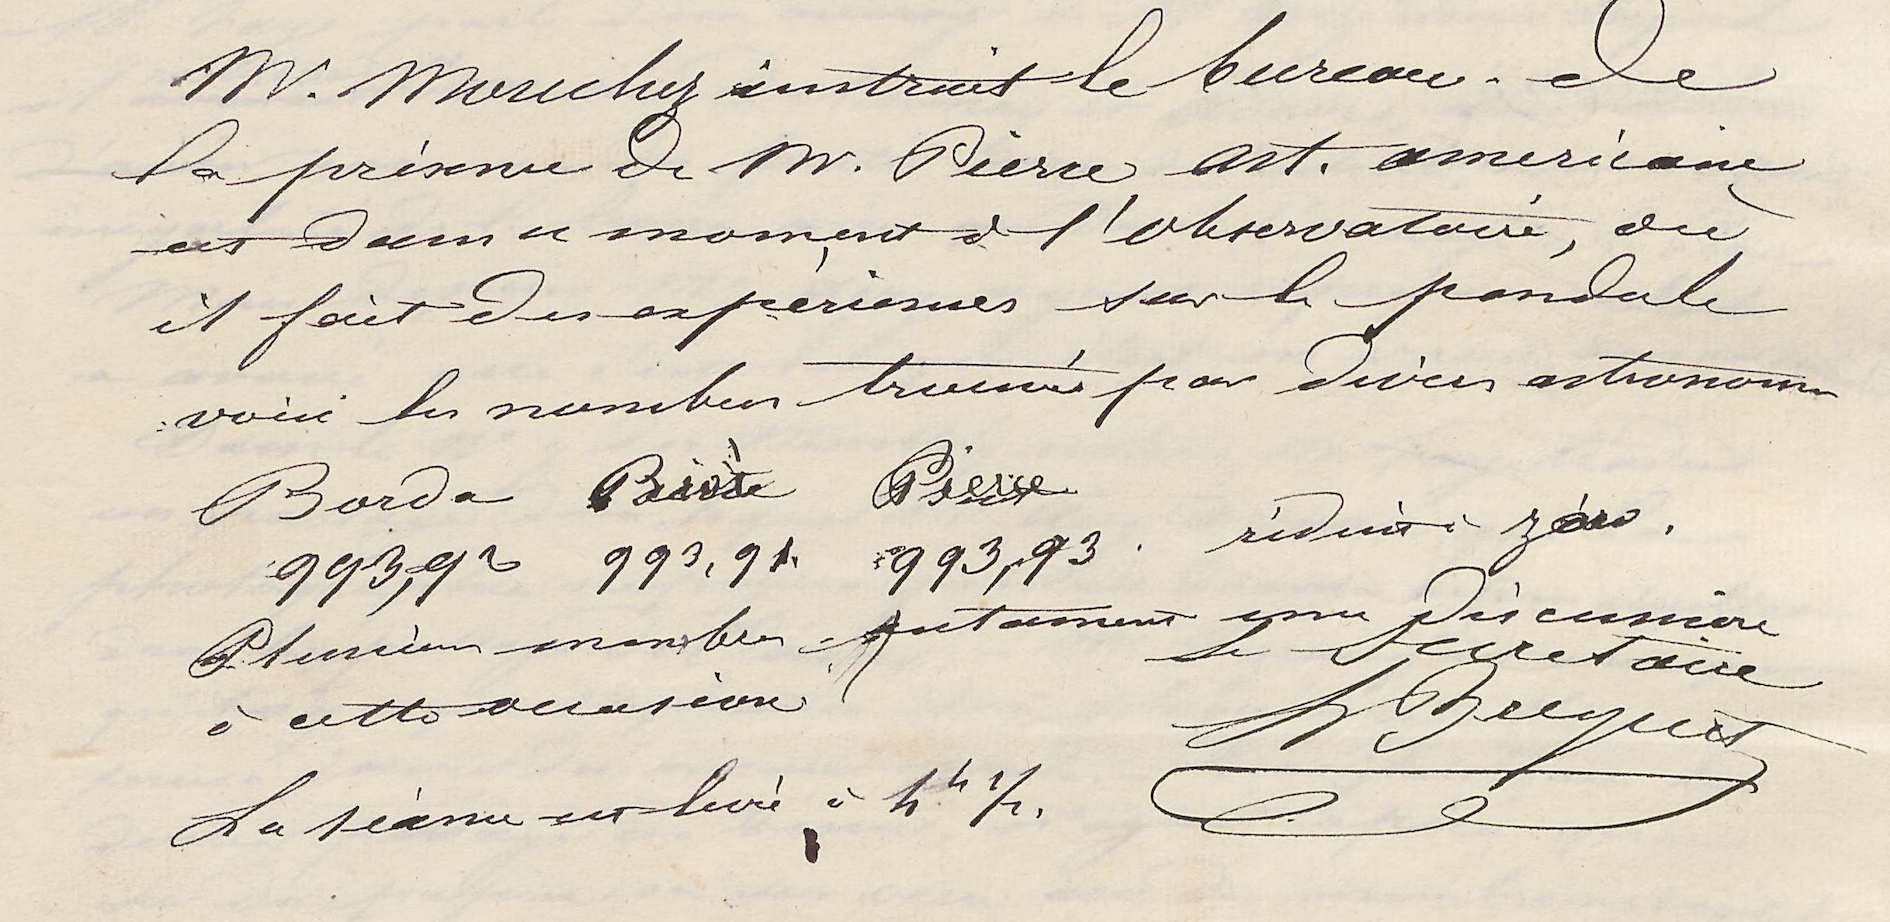 M. Mouchez instruit le bureau de
la présence de M. Pierre ast. américain
en ce moment à l'observatoire, où
il fait des expériences sur le pendule
voici les nombres trouvés par divers astronomes
Borda Biot Pierre
993,92 993,91 993,93. réduit à zéro.
Plusieurs membres entament une discussion
à cette occasion
Le Secretaire
L Breguet
La séance est levée à 4h 1/2.